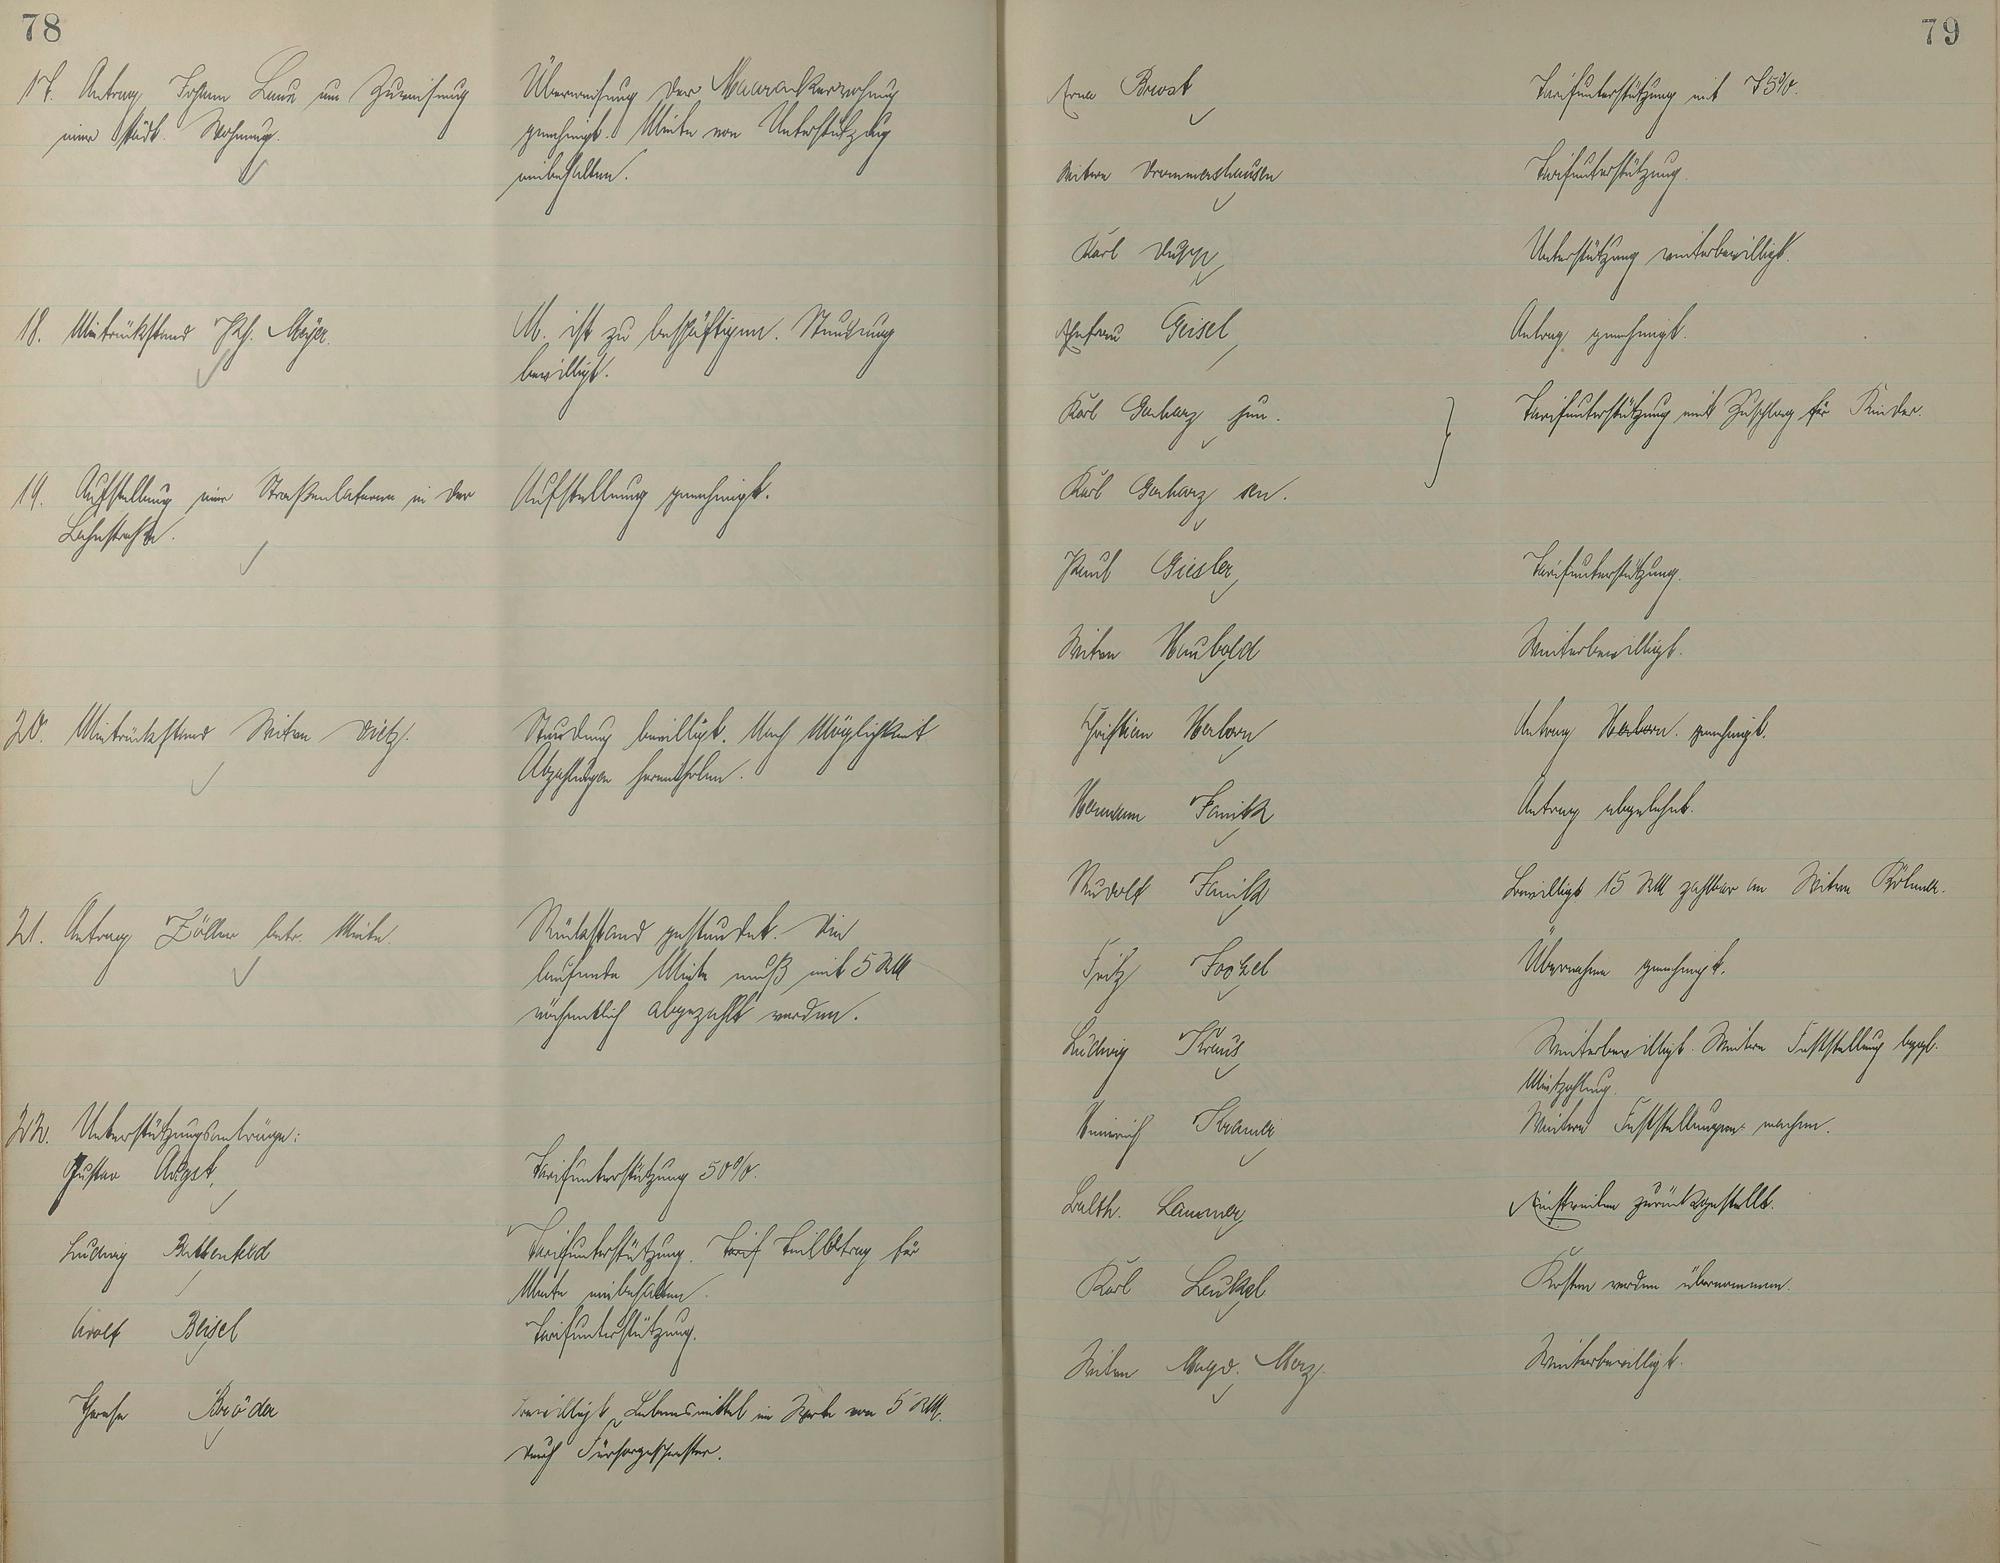 78
17. Antrag Johann Laux um Zuweisung
einer städt. Wohnung.
Überweisung der
genehmigt. Miete von Unterstützung
einbehalten.
18. Mietrückstand Jak. Meyer.
M. ist zu beschäftigen. Stundung
bewilligt.
19. Aufstellung einer Straßenlaterne in der
Lahnstraße.
Aufstellung genehmigt.
20. Mietrückstand Witwe Dietz.
Stundung bewilligt. Nach Möglichkeit
Abzahlungen hereinholen.
21. Antrag Zöller betr. Miete.
Rückstand gestundet. Die
laufende Miete muß mit 5 RM
wöchentlich abgezahlt werden.
22. Unterstützungsanträge:
Gustav August,
Tarifunterstützung 50%.
Ludwig Bettenfeld
Tarifunterstützung. Teilbetrag für
Miete einbehalten.
Adolf Beisel
Tarifunterstützung.
Therese Bröder
Bewilligt Lebensmittel im Werte von 5 RM.
durch Fürsorgeschwester.
79
Erna Brust
Tarifunterstützung mit 75%.
Witwe Drommershausen
Tarifunterstützung.
Karl Dupp
Unterstützung weiterbewilligt.
Ehefrau Geisel
Antrag genehmigt.
Karl Gerharz jun.
Tarifunterstützung mit Zuschlag für Kinder.
Karl Gerharz sen.
Paul Giesler
Tarifunterstützung.
Witwe Haubold
Weiterbewilligt.
Christian Herborn
Antrag Herborn genehmigt.
Hermann Janitz
Antrag abgelehnt.
Rudolf Janitz
Bewilligt 15 RM zahlbar an Witwe
Fritz
Übernahme genehmigt.
Ludwig Kraus
Weiterbewilligt. Weitere Feststellung bezgl.
Mietzahlung.
Heinrich Kramer
Weitere Feststellungen machen.
Balth. Lammer
Einstweilen zurückgestellt.
Karl Leukel
Kosten werden übernommen.
Witwe Magd. Merz
Weiterbewilligt.